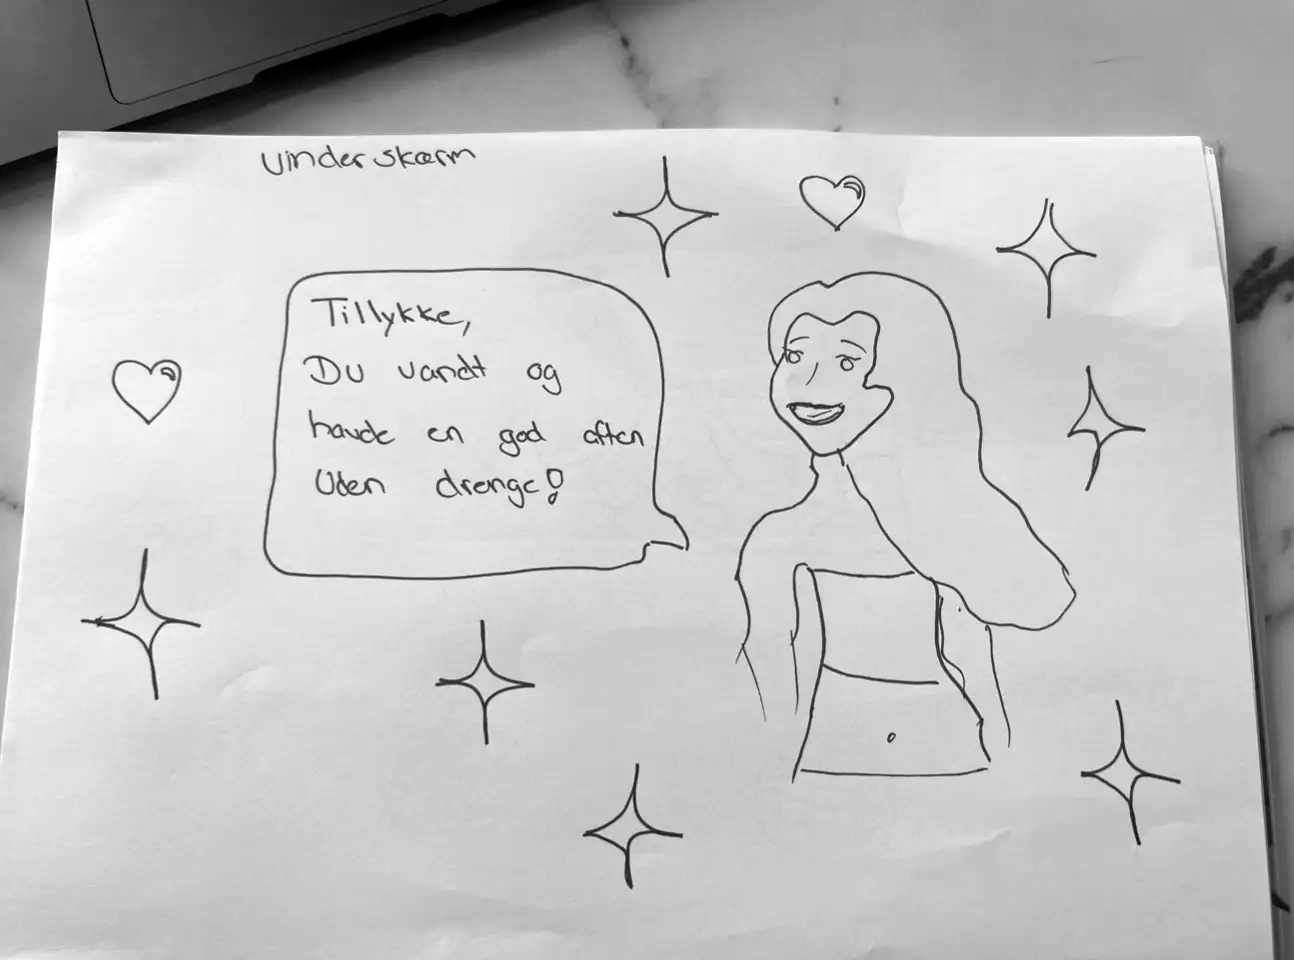 Vinder skærm
Tillykke,
Du vandt og
havde en god aften
Uden drenge!